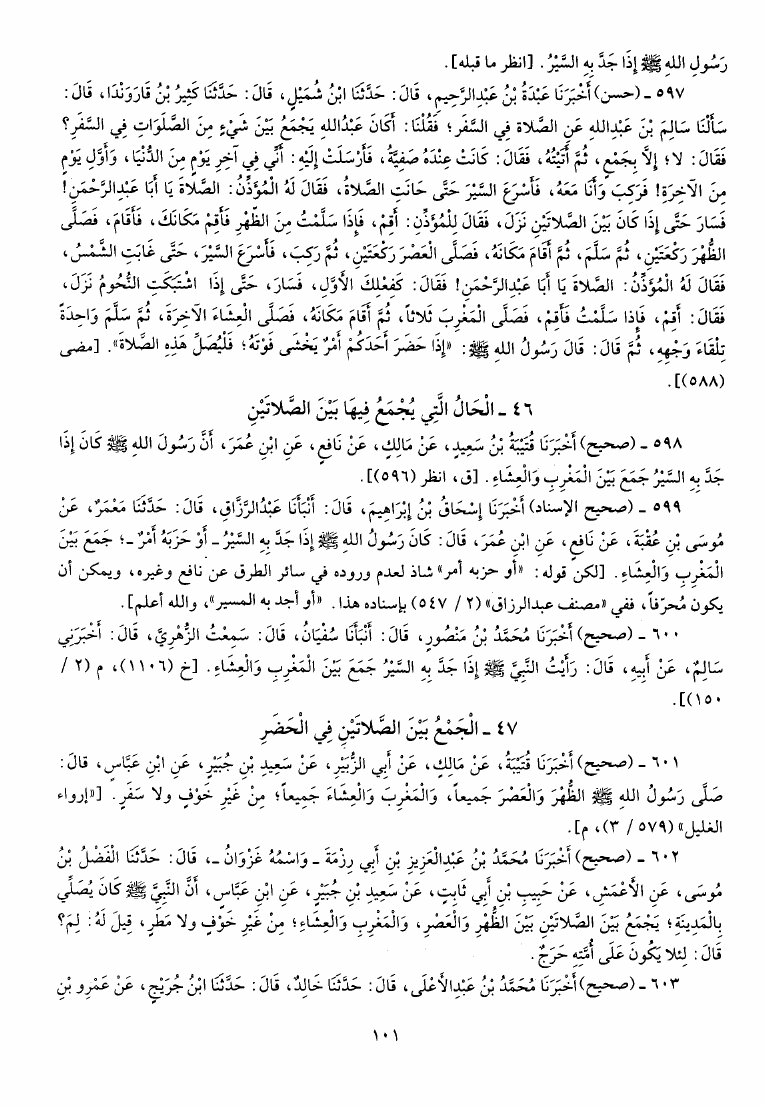 رَسُولِ اللهِ ﷺ إِذَا جَدَّ بِهِ السَّيْرُ. [انظر ما قبله].
٥٩٧ ـ (حسن) أَخْبَرَنَا عَبْدَةُ بْنُ عَبْدِالرَّحِيمِ، قَالَ: حَدَّثَنَا ابْنُ شُمَيْلٍ، قَالَ: حَدَّثَنَا كَثِيرُ بْنُ قَارَوَنْدَا، قَالَ:
سَأَلْنَا سَالِمَ بْنَ عَبْدِاللهِ عَنِ الصَّلاةِ فِي السَّفَرِ؛ فَقُلْنَا: أَكَانَ عَبْدُاللهِ يَجْمَعُ بَيْنَ شَيْءٍ مِنَ الصَّلَوَاتِ فِي السَّفَرِ؟
فَقَالَ: لا؛ إِلَّا بِجَمْعٍ، ثُمَّ أَتَيْتُهُ، فَقَالَ: كَانَتْ عِنْدَهُ صَفِيَّةُ، فَأَرْسَلَتْ إِلَيْهِ: أَنِّي فِي آخِرِ يَوْمٍ مِنَ الدُّنْيَا، وَأَوَّلِ يَوْمٍ
مِنَ الآخِرَةِ! فَرَكِبَ وَأَنَا مَعَهُ، فَأَسْرَعَ السَّيْرَ حَتَّى حَانَتِ الصَّلاةُ، فَقَالَ لَهُ الْمُؤَذِّنُ: الصَّلاةَ يَا أَبَا عَبْدِالرَّحْمَنِ!
فَسَارَ حَتَّى إِذَا كَانَ بَيْنَ الصَّلاتَيْنِ نَزَلَ، فَقَالَ لِلْمُؤَذِّنِ: أَقِمْ، فَإِذَا سَلَّمْتُ مِنَ الظُّهْرِ فَأَقِمْ مَكَانَكَ، فَأَقَامَ، فَصَلَّى
الظُّهْرَ رَكْعَتَيْنِ، ثُمَّ سَلَّمَ، ثُمَّ أَقَامَ مَكَانَهُ، فَصَلَّى الْعَصْرَ رَكْعَتَيْنِ، ثُمَّ رَكِبَ، فَأَسْرَعَ السَّيْرَ، حَتَّى غَابَتِ الشَّمْسُ،
فَقَالَ لَهُ الْمُؤَذِّنُ: الصَّلاةَ يَا أَبَا عَبْدِالرَّحْمَنِ! فَقَالَ: كَفِعْلِكَ الأَوَّلِ، فَسَارَ، حَتَّى إِذَا اشْتَبَكَتِ النُّجُومُ نَزَلَ،
فَقَالَ: أَقِمْ، فَإِذا سَلَّمْتُ فَأَقِمْ، فَصَلَّى الْمَغْرِبَ ثَلاثاً، ثُمَّ أَقَامَ مَكَانَهُ، فَصَلَّى الْعِشَاءَ الآخِرَةَ، ثُمَّ سَلَّمَ وَاحِدَةً
تِلْقَاءَ وَجْهِهِ، ثُمَّ قَالَ: قَالَ رَسُولُ اللهِ ﷺ: «إِذَا حَضَرَ أَحَدَكُمْ أَمْرٌ يَخْشَى فَوْتَهُ؛ فَلْيُصَلِّ هَذِهِ الصَّلاةَ». [مضى
(٥٨٨)].
٤٦ ـ الْحَالُ الَّتِي يُجْمَعُ فِيهَا بَيْنَ الصَّلاتَيْنِ
٥٩٨ ـ (صحيح) أَخْبَرَنَا قُتَيْبَةُ بْنُ سَعِيدٍ، عَنْ مَالِكٍ، عَنْ نَافِعٍ، عَنِ ابْنِ عُمَرَ، أَنَّ رَسُولَ اللهِ ﷺ كَانَ إِذَا
جَدَّ بِهِ السَّيْرُ جَمَعَ بَيْنَ الْمَغْرِبِ وَالْعِشَاءِ. [ق، انظر (٥٩٦)].
٥٩٩ ـ (صحيح الإسناد) أَخْبَرَنَا إِسْحَاقُ بْنُ إِبْرَاهِيمَ، قَالَ: أَنْبَأَنَا عَبْدُالرَّزَّاقِ، قَالَ: حَدَّثَنَا مَعْمَرٌ، عَنْ
مُوسَى بْنِ عُقْبَةَ، عَنْ نَافِعٍ، عَنِ ابْنِ عُمَرَ، قَالَ: كَانَ رَسُولُ اللهِ ﷺ إِذَا جَدَّ بِهِ السَّيْرُ ـ أَوْ حَزَبَهُ أَمْرٌ ـ؛ جَمَعَ بَيْنَ
الْمَغْرِبِ وَالْعِشَاءِ. [لكن قوله: «أو حزبه أمر» شاذ لعدم وروده في سائر الطرق عن نافع وغيره، ويمكن أن
يكون مُحرّفاً، ففي «مصنف عبدالرزاق» (٢ / ٥٤٧) بإسناده هذا. «أو أجد به المسير»، والله أعلم].
٦٠٠ ـ (صحيح) أَخْبَرَنَا مُحَمَّدُ بْنُ مَنْصُورٍ، قَالَ: أَنْبَأَنَا سُفْيَانُ، قَالَ: سَمِعْتُ الزُّهْرِيَّ، قَالَ: أَخْبَرَنِي
سَالِمٌ، عَنْ أَبِيهِ، قَالَ: رَأَيْتُ النَّبِيَّ ﷺ إِذَا جَدَّ بِهِ السَّيْرُ جَمَعَ بَيْنَ الْمَغْرِبِ وَالْعِشَاءِ. [خ (١١٠٦)، م (٢ /
١٥٠)].
٤٧ ـ الْجَمْعُ بَيْنَ الصَّلاتَيْنِ فِي الْحَضَرِ
٦٠١ ـ (صحيح) أَخْبَرَنَا قُتَيْبَةُ، عَنْ مَالِكٍ، عَنْ أَبِي الزُّبَيْرِ، عَنْ سَعِيدِ بْنِ جُبَيْرٍ، عَنِ ابْنِ عَبَّاسٍ، قَالَ:
صَلَّى رَسُولُ اللهِ ﷺ الظُّهْرَ وَالْعَصْرَ جَمِيعاً، وَالْمَغْرِبَ وَالْعِشَاءَ جَمِيعاً؛ مِنْ غَيْرِ خَوْفٍ ولا سَفَرٍ. [«إرواء
الغليل» (٥٧٩ / ٣)، م].
٦٠٢ ـ (صحيح) أَخْبَرَنَا مُحَمَّدُ بْنُ عَبْدِالْعَزِيزِ بْنِ أَبِي رِزْمَةَ ـ وَاسْمُهُ غَزْوَانُ ـ، قَالَ: حَدَّثَنَا الْفَضْلُ بْنُ
مُوسَى، عَنِ الأَعْمَشِ، عَنْ حَبِيبِ بْنِ أَبِي ثَابِتٍ، عَنْ سَعِيدِ بْنِ جُبَيْرٍ، عَنِ ابْنِ عَبَّاسٍ، أَنَّ النَّبِيَّ ﷺ كَانَ يُصَلِّي
بِالْمَدِينَةِ؛ يَجْمَعُ بَيْنَ الصَّلاتَيْنِ بَيْنَ الظُّهْرِ وَالْعَصْرِ، وَالْمَغْرِبِ وَالْعِشَاءِ؛ مِنْ غَيْرِ خَوْفٍ ولا مَطَرٍ، قِيلَ لَهُ: لِمَ؟
قَالَ: لِئلا يَكُونَ عَلَى أُمَّتِهِ حَرَجٌ.
٦٠٣ ـ (صحيح) أَخْبَرَنَا مُحَمَّدُ بْنُ عَبْدِالأَعْلَى، قَالَ: حَدَّثَنَا خَالِدٌ، قَالَ: حَدَّثَنَا ابْنُ جُرَيْجٍ، عَنْ عَمْرِو بْنِ
١٠١